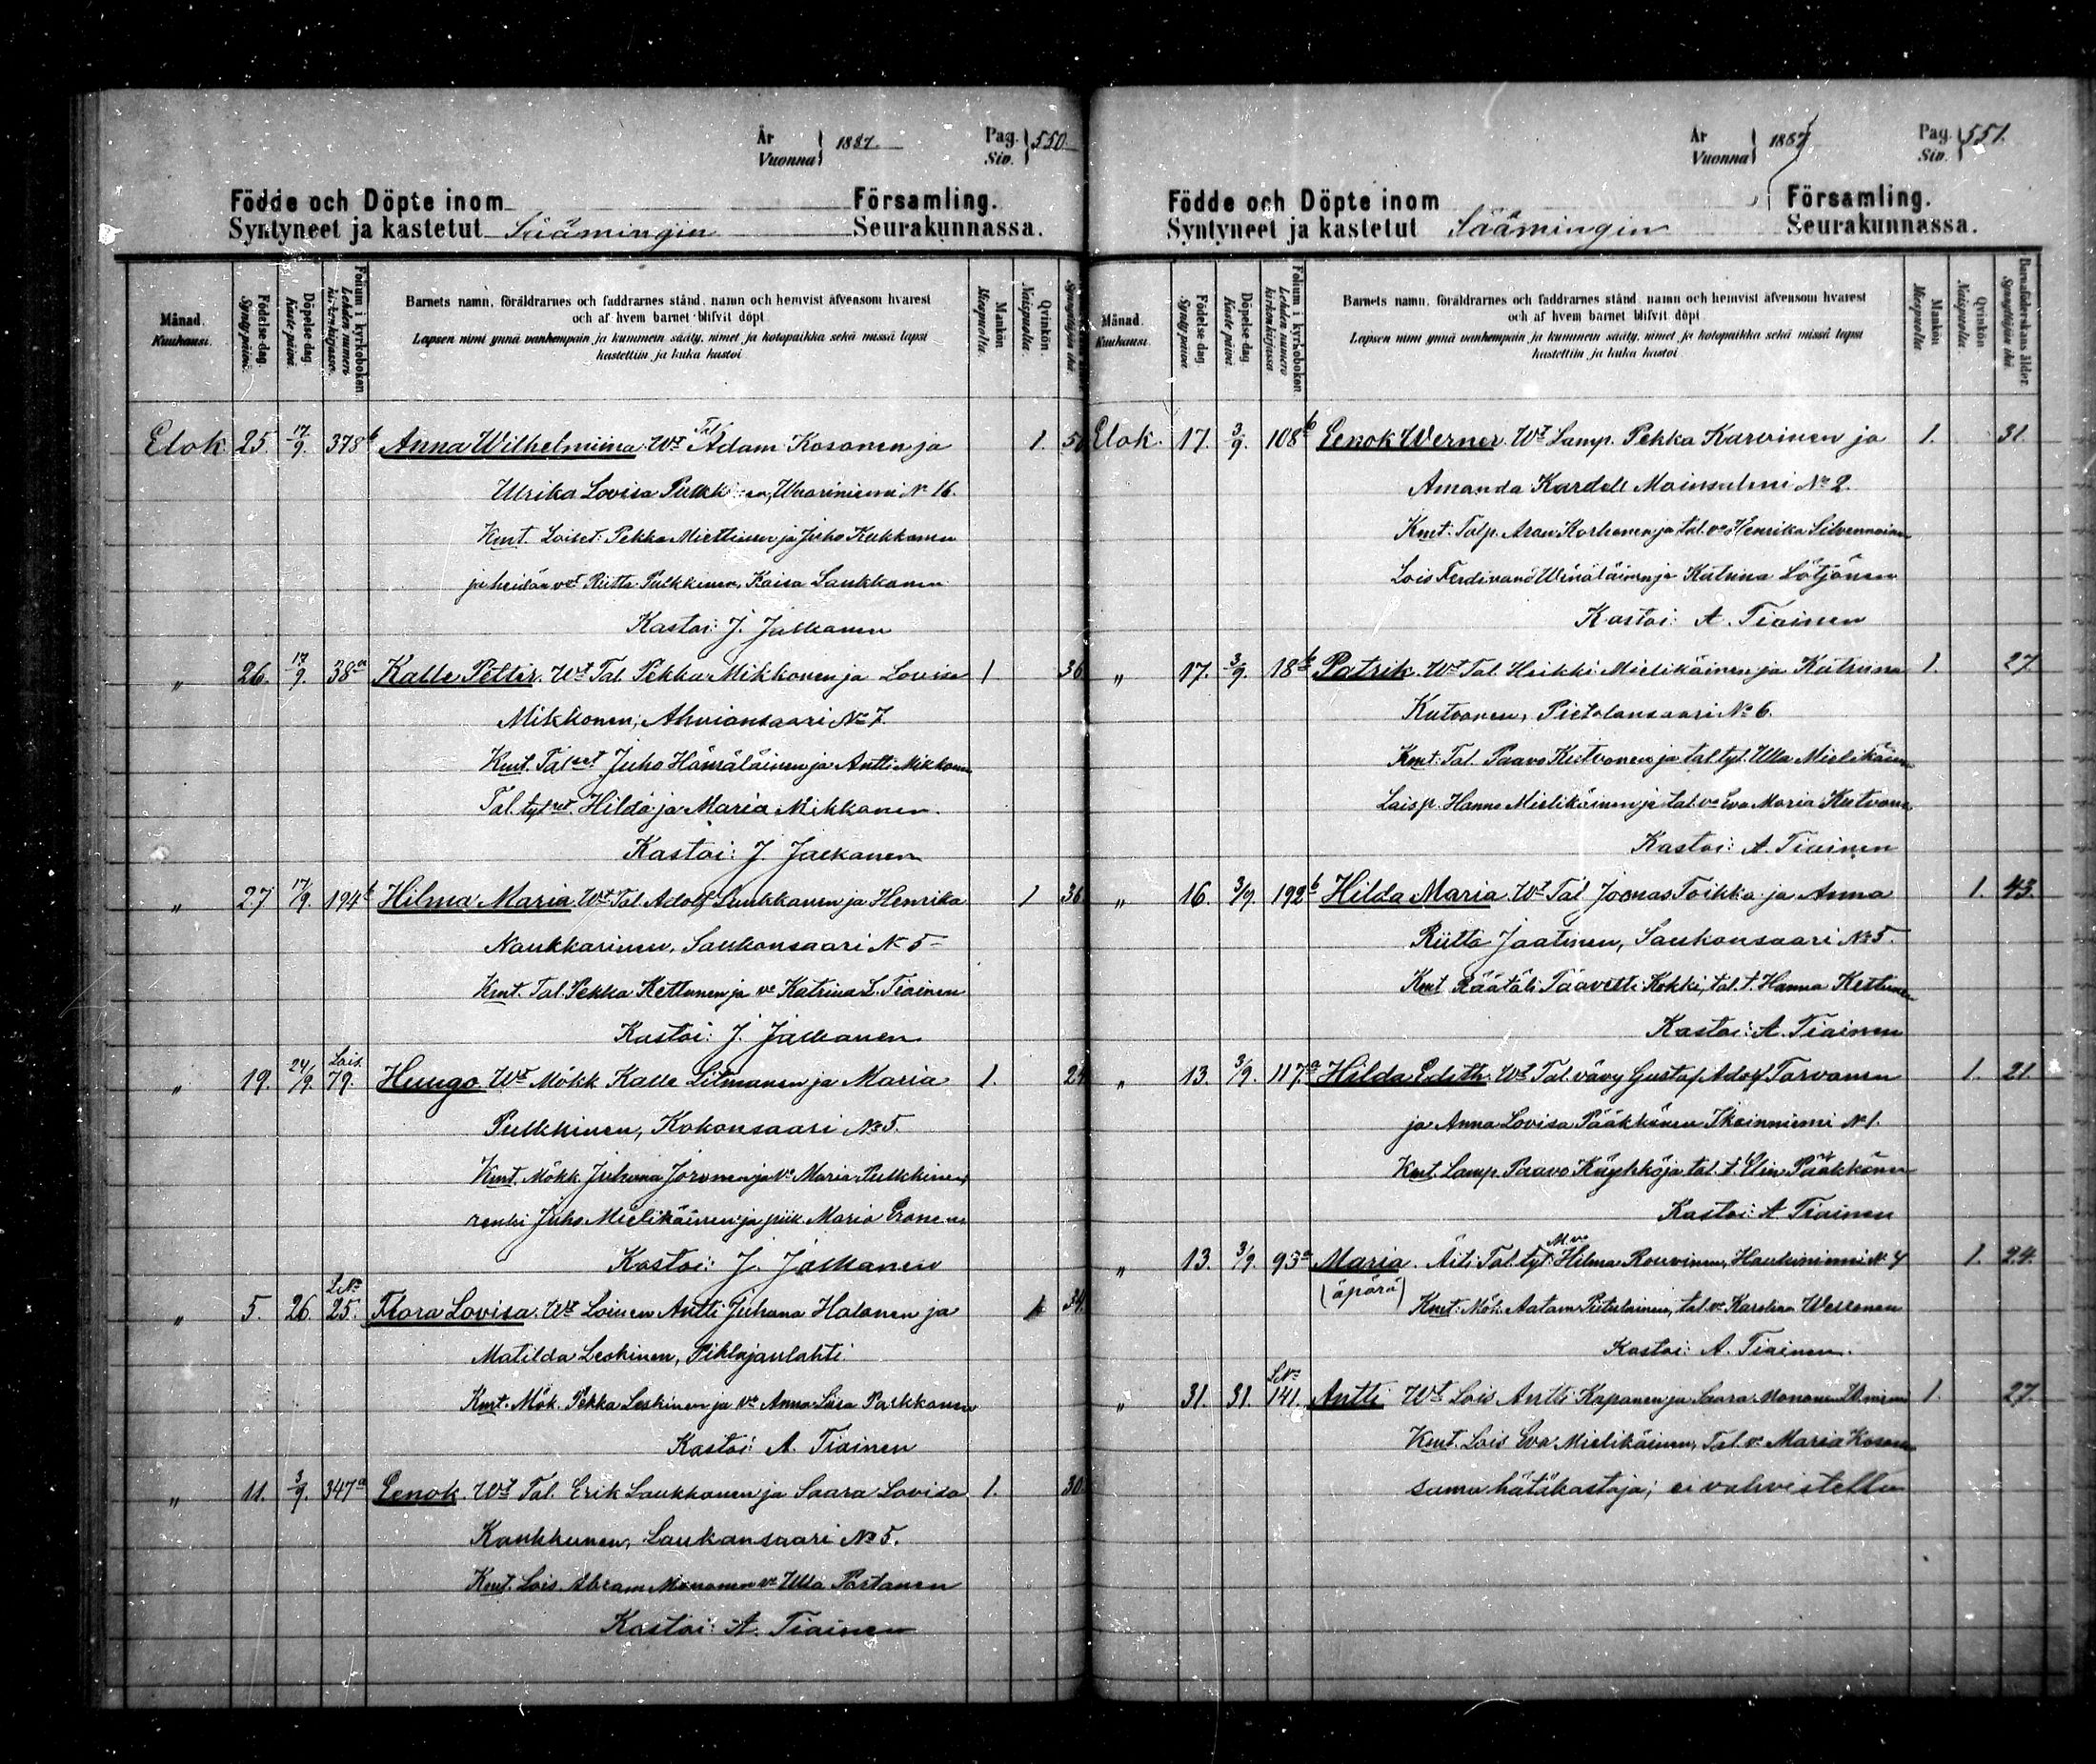 År
Vuonna } 1887.
Pag.
Siv. } 550
Födde och Döpte inom Församling.
Syntyneet ja kastetut Säämingin Seurakunnassa.
Månad.
Kuukausi.
Födelse dag.
Synty päivä.
Döpelse dag.
Kaste päivä.
Folium i kyrkoboken
Lehden numero
kirkonkirjassa.
Barnets namn, föräldrarnes och faddrarnes stånd, namn och hemvist äfvensom hvarest
och af hvem barnet blifvit döpt.
Lapsen nimi ynnä vanhempain ja kummein sääty, nimet ja kotopaikka sekä missä lapsi
kastettiin ja kuka kastoi.
Mankön
Miespuolia.
Qvinkön.
Naispuolia.
Elok 25. 17/9. 378 b Anna Wilhelmiina. Wt Tal Adam Kosonen ja 1.
Ulrika Lovisa Pulkkinen, No 16.
Kmt. Loiset: Pekka Miettinen ja Juho Kukkonen
ja heidän vot Riitta Pulkkinen, Kaisa Laukkanen
Kastoi: J. Jalkanen
„ 26. 17/9. 38 a Kalle Petter. Wt Tal. Pekka Mikkonen ja Lovisa 1 36
Mikkonen, Ahvionsaari No 7.
Kmt. Talset Juho Hämäläinen ja Antti Mikkonen
Tal. tytret Hilda ja Maria Mikkonen.
Kastoi: J. Jalkanen
„ 27 17/9. 194 b Hilma Maria. Wt Tal. Adolf Laukkanen ja Henrika 1 36
Naukkarinen, Laukansaari No 5
Kmt. Tal. Pekka Kettunen ja vo Katrina L. Tiainen
Kastoi: J. Jalkanen
„ 19. 24/9. Lois. 79. Huugo. Wt Mökk Kalle Litmanen ja Maria 1.
Pulkkinen, Kokonsaari No 5.
Kmt. Mökk. Juhana Joronen ja vo Maria Pulkkinen,
renki Juho Mielikäinen ja piik. Maria Eronen
Kastoi: J. Jalkanen
„ 5. 26. L No 25. Flora Lovisa. Wt Loinen Antti Juhana Halonen ja 1 34.
Matilda Leskinen, Pihlajanlahti.
Kmt. Mök. Pekka Leskinen ja vo Anna Liisa Parkkonen
Kastoi: A. Tiainen
„ 11. 3/9. 347 a Eenok. Wt Tal. Erik Laukkanen ja Saara Lovisa 1. 30.
Kaukkunen, Laukansaari No 5.
Kmt. Lois. Abram Mononen vo Ulla Partanen
Kastoi: A. Tiainen
År
Vuonna } 1887
Pag.
Siv. } 551.
Födde och Döpte inom Församling.
Syntyneet ja kastetut Säämingin Seurakunnassa.
Månad.
Kuukausi.
Födelse dag.
Synty päivä.
Döpelse dag.
Kaste päivä.
Folium i kyrkoboken
Lehden numero
kirkonkirjassa
Barnets namn, föräldrarnes och faddrarnes stånd, namn och hemvist äfvensom hvarest
och af hvem barnet blifvit döpt.
Lapsen nimi ynnä vanhempain ja kummein sääty, nimet ja kotopaikka sekä missä lapsi
kastettiin ja kuka kastoi.
Mankön
Miespuolia
Qvinkön
Naispuolia
Barnaföderskans ålder.
Synnyttäjän ikä.
Elok. 17. 3/9. 108 b Eenok Werner. Wt Lamp. Pekka Karvinen ja 1. 31
Amanda Kardell Moinsalmi No 2.
Kmt: Talp. Aran Korhonen ja tal. vo Henrika Silvennoinen
Lois Ferdinand Wenäläinen ja Katrina Lötjönen
Kastoi: A. Tiainen
„ 17. 3/9. 18 b Patrik. Wt Tal. Heikki Mielikäinen ja Katrina 1. 27
Kutvonen, Pietolansaari No 6.
Kmt: Tal. Paavo Kutvonen ja tal. tyt. Ulla Mielikäinen
Lais p. Hannu Mielikäinen ja tal. vo Eva Maria Kutvonen
Kastoi: A. Tiainen
„ 16. 3/9. 192 b Hilda Maria. Wt Tal Joonas Toikka ja Anna 1. 43.
Riitta Jaatinen, Laukansaari No 5.
Kmt Räätäli Taavetti Kokki, tal. t. Hanna Kettunen
Kastoi: A. Tiainen
„ 13. 3/9. 117 a Hilda Edith. Wt Tal vävy Gustaf Adolf Tarvanen 1. 21.
ja Anna Lovisa Pääkkönen Ikoinniemi No 1.
Kmt. Lamp. Paavo Käyhkö ja tal. t. Elin Pääkkönen
Kastoi: A. Tiainen
„ 13. 3/9. 93 a Maria. Äiti Tal. tyt. M. vo Hilma Rouvinen, Haukiniemi No 4 1. 24.
(äpärä) Kmt: Mök. Aatam Pitulainen, tal. vo Karolina Wesronen
Kastoi: A. Tiainen.
„ 31. 31. L No 141. Antti Wt Lois Antti Kapanen ja Saara Mononen 1. 27.
Kmt. Lois Eva Mielikäinen, Tal. vo Maria Kosonen
sama hätäkastaja; ei vahvistettu